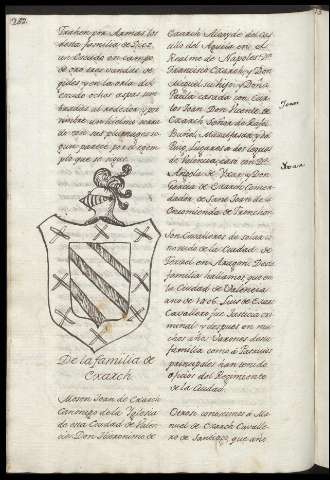 282.
Trahen por Armas los
desta familia de
un Escudo en campo
de oro tres vandas de
gules y en la orla del
escudo ocho aspas som
bradas al rededor, y por
timbre un hielmo acaba
do con sus plumages se
gun parece por el exem
plo que se sigue.
De la familia de
Exarch.
Mosen Joan de Exarch
Canonigo de la Yglesia
de esta Ciudad de Valen
cia. Don Hieronimo de
Exarch Alcayde del cas
tillo del Aguila en el
Realmo de Napoles. Don
Francisco Exarch, y Don
Miguel su hijo; y Doña
Paula casada con Car
los Juan. Don Vicente de
Exarch Señor de Rafel
Buñol, Massalfasar, y del
Puig, lugares a dos leguas
de Valencia, casa con Dª
Angela de y Don
Garcia de Exarch Comen
dador de San Joan de la
Encomienda de
Son Cavalleros de solar co
nocido de la Ciudad de
Teruel en Aragon. Desta
familia hallamos que en
la Ciudad de Valencia
ano de 1406. Luis de Exarch
Cavallero fue Justicia cri
minal y despues en mu
chos años. Varones desta
familia como a Patricios
principales han tenido
oficios del Regimiento
de la Ciudad.
Otrosi conosimos a Ma
nuel de Exarch Cavalle
ro de Santiago, que año